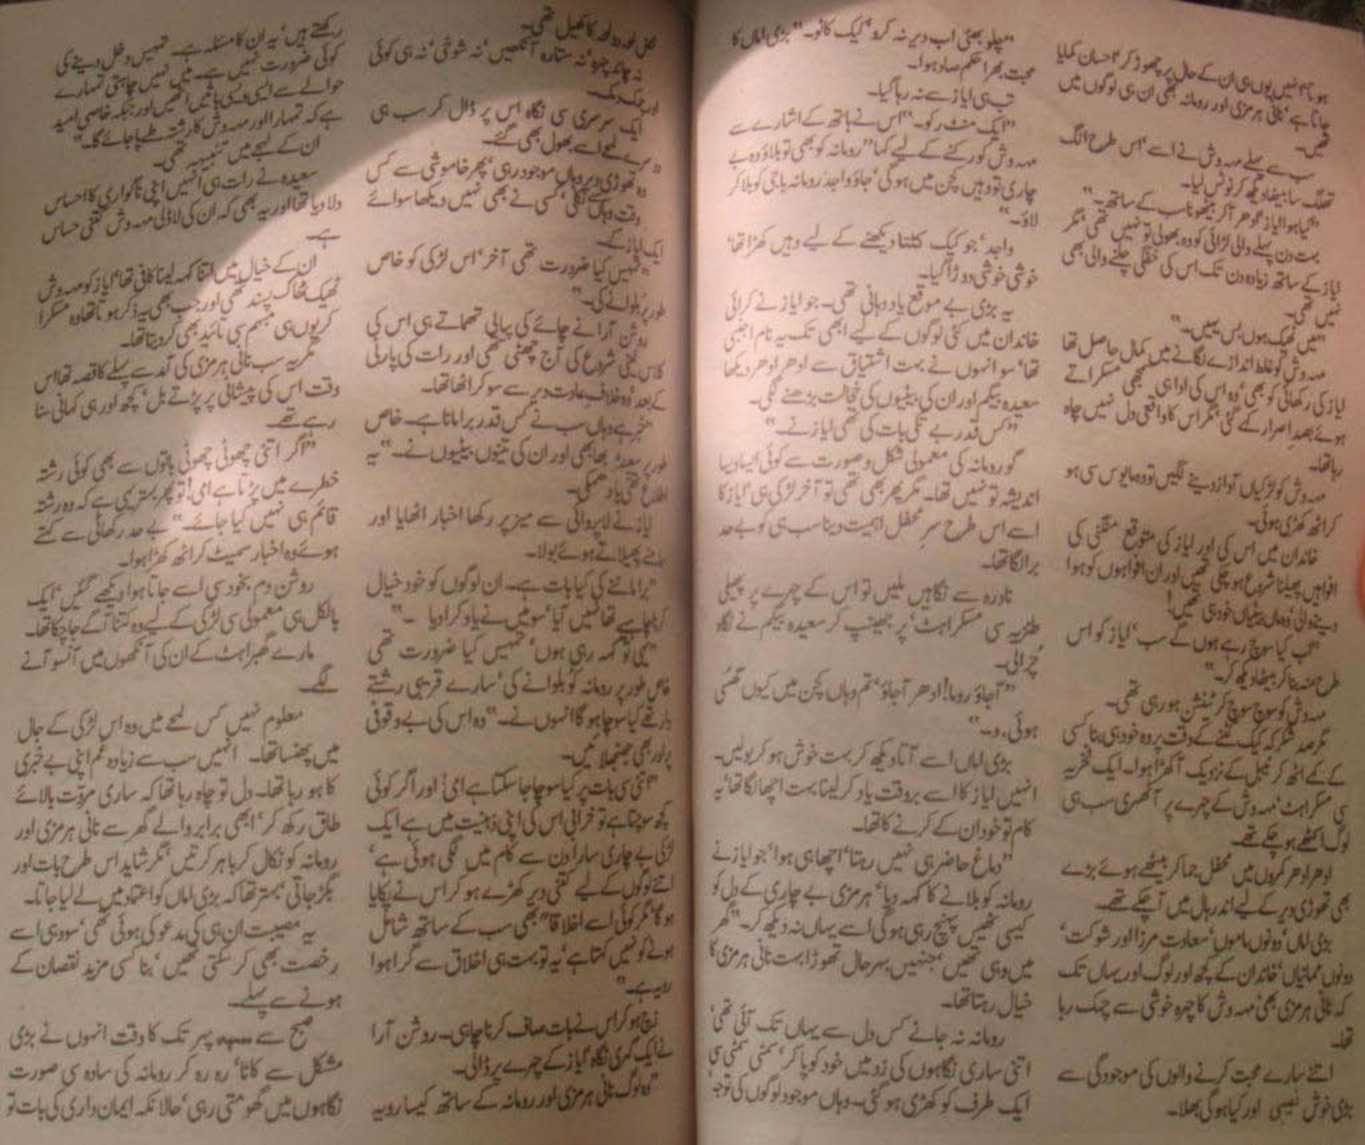 ہونا ہے انہیں یوں ہی ان کے حال پر چھوڑ کر احسان کمایا
جاتا ہے، نانی ہرمزی اور رومانہ بھی ان ہی لوگوں میں
تھیں۔
سب سے پہلے مہہ وش نے اسے اس طرح الگ
تھلگ سا بیٹھا دیکھ کر نوٹس لیا۔
"کیا ہوا ایاز ادھر آکر بیٹھو نا سب کے ساتھ۔"
بہت دن پہلے والی لڑائی کو وہ بھولی تو نہیں تھی مگر
ایاز کے ساتھ زیادہ دن تک اس کی خفگی چلنے والی بھی
نہیں تھی۔
"میں ٹھیک ہوں بس یہیں۔"
مہہ وش کو غلط اندازے لگانے میں کمال حاصل تھا
ایاز کی رکھائی کو بھی وہ اس کی ادا ہی سمجھی مسکراتے
ہوئے بصد اصرار کے گئی مگر اس کا واقعی دل نہیں چاہ
رہا تھا۔
مہہ وش کو لڑکیاں آواز دینے لگیں تو وہ مایوس سی ہو
کر اٹھ کھڑی ہوئی۔
خاندان میں اس کی اور ایاز کی متوقع منگنی کی
افواہیں پھیلنا شروع ہو چکی تھیں اور ان افواہوں کو ہوا
دینے والی وہ ماں بیٹیاں خود ہی تھیں!
"اب کیا سوچ رہے ہوں گے سب ایاز کو اس
طرح منہ بنا کر بیٹھا دیکھ کر۔"
مہہ وش کو سوچ سوچ کر ٹینشن ہو رہی تھی۔
مگر صد شکر کہ کیک کٹنے کے وقت پر وہ خود ہی بنا کسی
کے کہے اٹھ کر ٹیبل کے نزدیک آ کھڑا ہوا۔ ایک فخریہ
سی مسکراہٹ مہہ وش کے چہرے پر آ ٹھہری سب ہی
لوگ اکٹھے ہو چکے تھے۔
ادھر ادھر کمروں میں محفل جما کر بیٹھے ہوئے بڑے
بھی تھوڑی دیر کے لیے اندر ہال میں آ چکے تھے۔
بڑی اماں، دونوں ماموں، سعادت مرزا اور شوکت،
دونوں ممانیاں، خاندان کے کچھ اور لوگ اور یہاں تک
کہ نانی ہرمزی بھی، مہہ وش کا چہرہ خوشی سے چمک رہا
تھا۔
اتنے سارے محبت کرنے والوں کی موجودگی سے
بڑی خوش نصیبی اور کیا ہوگی بھلا۔
"چلو بھئی اب دیر نہ کرو، کیک کاٹو۔" بڑی اماں کا
محبت بھرا حکم صادر ہوا۔
تب ہی ایاز سے نہ رہا گیا۔
"ایک منٹ رکو۔" اس نے ہاتھ کے اشارے سے
مہہ وش کو رکنے کے لیے کہا "رومانہ کو بھی تو بلاؤ وہ بے
چاری تو وہیں کچن میں ہوگی، جاؤ واجد رومانہ باجی کو بلا کر
لاؤ۔"
واجد، جو کیک کٹنا دیکھنے کے لیے وہیں کھڑا تھا،
خوشی خوشی دوڑا گیا۔
یہ بڑی بے موقع یاد دہانی تھی۔ جو ایاز نے کرائی
خاندان میں کئی لوگوں کے لیے ابھی تک یہ نام اجنبی
تھا، سو انہوں نے بہت اشتیاق سے ادھر ادھر دیکھا
سعیدہ بیگم اور ان کی بیٹیوں کی خجالت بڑھنے لگی۔
"کس قدر بے تکی بات کی تھی ایاز نے۔"
گو رومانہ کی معمولی شکل و صورت سے کوئی ایسا ویسا
اندیشہ تو نہیں تھا۔ مگر پھر بھی تھی تو آخر لڑکی ہی، ایاز کا
اسے اس طرح سر محفل اہمیت دینا سب ہی کو بے حد
برا لگا تھا۔
نادرہ سے نگاہیں ملیں تو اس کے چہرے پر پھیلی
طنزیہ سی مسکراہٹ پر جھینپ کر سعیدہ بیگم نے نگاہ
چرالی۔
"آجاؤ روما! ادھر آجاؤ، تم وہاں کچن میں کیوں گھسی
ہوئی ہو۔"
بڑی اماں اسے آتا دیکھ کر بہت خوش ہو کر بولیں۔
انہیں ایاز کا اسے بروقت یاد کرلینا بہت اچھا لگا تھا، یہ
کام تو خود ان کے کرنے کا تھا۔
"دماغ حاضر ہی نہیں رہتا، اچھا ہی ہوا، جو ایاز نے
رومانہ کو بلانے کا کہہ دیا، ہرمزی بے چاری کے دل کو
کیسی ٹھیس پہنچ رہی ہوگی اسے یہاں نہ دیکھ کر۔" گھر
میں وہی تھیں، جنہیں بہرحال تھوڑا بہت نانی ہرمزی کا
خیال رہتا تھا۔
رومانہ نہ جانے کس دل سے یہاں تک آئی تھی،
اتنی ساری نگاہوں کی زد میں خود کو پا کر، سمٹی سمٹی سی
ایک طرف کو کھڑی ہوگئی۔ وہاں موجود لوگوں کی توجہ
لمحہ دو لمحہ کا کھیل تھی۔
نہ چاند چہرہ، نہ ستارہ آنکھیں، نہ شوخی، نہ ہی کوئی
اور چمک دمک۔
ایک سرسری سی نگاہ اس پر ڈال کر سب ہی
دوسرے لمحے اسے بھول بھی گئے۔
وہ تھوڑی دیر وہاں موجود رہی، پھر خاموشی سے کس
وقت وہاں سے نکلی، کسی نے بھی نہیں دیکھا سوائے
ایک ایاز کے۔
"تمہیں کیا ضرورت تھی آخر، اس لڑکی کو خاص
طور پر بلوانے کی۔"
روشن آرا نے چائے کی پیالی تھماتے ہی اس کی
کلاس لینی شروع کی آج چھٹی تھی اور رات کی پارٹی
کے بعد، وہ خلاف عادت دیر سے سو کر اٹھا تھا۔
"خبر ہے وہاں سب نے کس قدر برا مانا ہے۔ خاص
طور پر سعیدہ بھابھی اور ان کی تینوں بیٹیوں نے۔" یہ
اطلاع تھی یا دھمکی۔
ایاز نے لاپروائی سے میز پر رکھا اخبار اٹھایا اور
سامنے پھیلاتے ہوئے بولا۔
"برا ماننے کی کیا بات ہے۔ ان لوگوں کو خود خیال
کرنا چاہیے تھا نہیں آیا، سو میں نے یاد کرا دیا۔"
"یہی تو کہہ رہی ہوں، تمہیں کیا ضرورت تھی
خاص طور پر رومانہ کو بلوانے کی، سارے قریبی رشتے
دار تھے کیا سوچا ہوگا انہوں نے۔" وہ اس کی بے وقوفی
پر اور بھی جھنجلائیں۔
"اتنی سی بات پر کیا سوچا جا سکتا ہے امی! اور اگر کوئی
کچھ سوچتا ہے تو خرابی اس کی اپنی ذہنیت میں ہے ایک
لڑکی بے چاری سارا دن سے کام میں لگی ہوئی ہے،
اتنے لوگوں کے لیے کتنی دیر کھڑے ہو کر اس نے پکایا
ہوگا مگر کوئی اسے اخلاقا" بھی سب کے ساتھ شامل
ہونے کو نہیں کہتا ہے، یہ تو بہت ہی اخلاق سے گرا ہوا
رویہ ہے۔"
زچ ہو کر اس نے بات صاف کرنا چاہی۔ روشن آرا
نے ایک گہری نگاہ ایاز کے چہرے پر ڈالی۔
"وہ لوگ نانی ہرمزی اور رومانہ کے ساتھ کیسا رویہ
رکھتے ہیں، یہ ان کا مسئلہ ہے۔ تمہیں دخل دینے کی
کوئی ضرورت نہیں ہے۔ میں نہیں چاہتی تمہارے
حوالے سے ایسی ویسی باتیں اٹھیں اور جبکہ خاصی امید
ہے کہ تمہارا اور مہہ وش کا رشتہ طے پا جائے گا۔"
ان کے لہجے میں تنبیہہ تھی۔
سعیدہ نے رات ہی انہیں اپنی ناگواری کا احساس
دلا دیا تھا اور یہ بھی کہ ان کی لاڈلی مہہ وش کتنی حساس
ہے۔
ان کے خیال میں اتنا کہہ لینا کافی تھا، ایاز کو مہہ وش
ٹھیک ٹھاک پسند تھی اور جب بھی یہ ذکر ہوتا تھا وہ مسکرا
کر یوں ہی مبہم سی تائید بھی کر دیتا تھا۔
مگر یہ سب نانی ہرمزی کی آمد سے پہلے کا قصہ تھا اس
وقت اس کی پیشانی پر پڑتے بل، کچھ اور ہی کہانی سنا
رہے تھے۔
"اگر اتنی چھوٹی چھوٹی باتوں سے بھی کوئی رشتہ
خطرے میں پڑتا ہے امی! تو پھر بہتر یہی ہے کہ وہ رشتہ
قائم ہی نہیں کیا جائے۔" بے حد رکھائی سے کہتے
ہوئے وہ اخبار سمیٹ کر اٹھ کھڑا ہوا۔
روشن دم بخود سی اسے جاتا ہوا دیکھے گئیں، ایک
بالکل ہی معمولی سی لڑکی کے لیے وہ کتنا آگے جا چکا تھا۔
مارے گھبراہٹ کے ان کی آنکھوں میں آنسو آنے
لگے۔
معلوم نہیں کس لمحے میں وہ اس لڑکی کے جال
میں پھنسا تھا۔ انہیں سب سے زیادہ غم اپنی بے خبری
کا ہو رہا تھا۔ دل تو چاہ رہا تھا کہ ساری مروت بالائے
طاق رکھ کر، ابھی برابر والے گھر سے نانی ہرمزی اور
رومانہ کو نکال کر باہر کرتیں، مگر شاید اس طرح بات اور
بگڑ جاتی، بہتر تھا کہ بڑی اماں کو اعتماد میں لے لیا جاتا۔
یہ مصیبت ان ہی کی مدعو کی ہوئی تھی، سو وہی اسے
رخصت بھی کر سکتی تھیں، بنا کسی مزید نقصان کے
ہونے سے پہلے۔
صبح سے سہ پہر تک کا وقت انہوں نے بڑی
مشکل سے کاٹا، رہ رہ کر رومانہ کی سادہ سی صورت
نگاہوں میں گھومتی رہی، حالانکہ ایمان داری کی بات تو